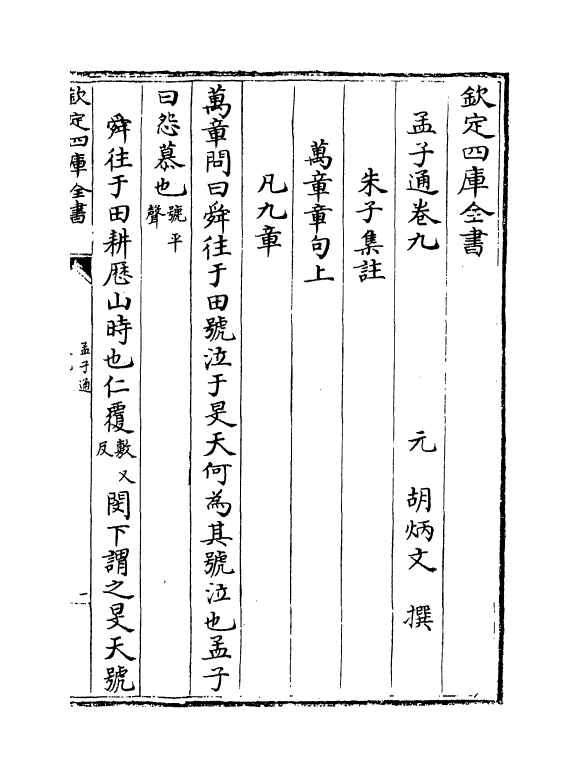 欽定四庫全書
孟子通卷九
元 胡炳文 撰
朱子集註
萬章章句上
凡九章
萬章問曰舜往于田號泣于旻天何為其號泣也孟子
曰怨慕也號平聲
舜往于田耕歴山時也仁覆敷又反閔下謂之旻天號
欽定四庫全書
孟子通
一